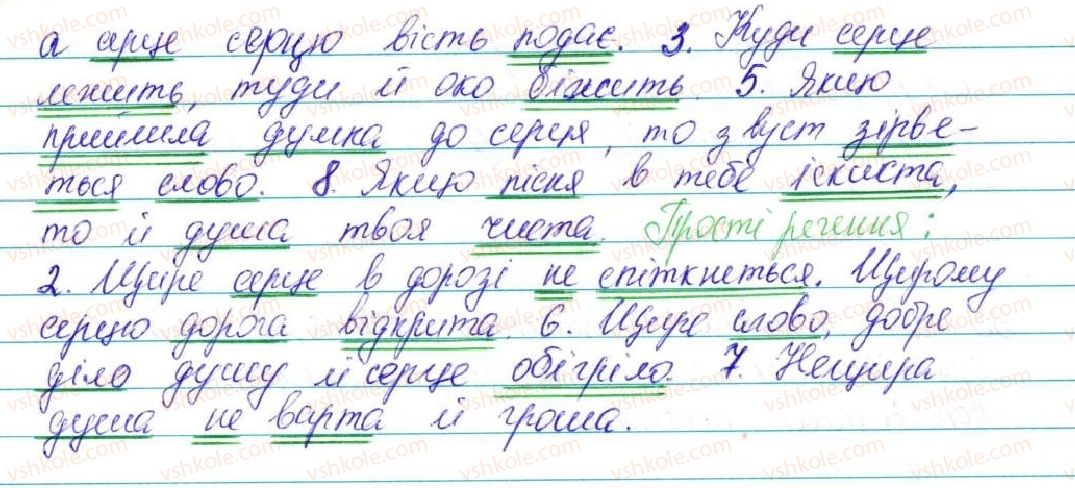 а арце серцю вість подає. 3. Куди серце
лежить, туди й око біжить. 5. Якщо
прийшла думка до серця, то з вуст зірве-
ться слово. 8. Якщо пісня в тебе іскиста,
то й душа твоя чиста. Прості речення:
2. Щире серце в дорозі не спіткнеться. Щирому
серцю дорога відкрита. 6. Щире слово, добре
діло душу й серце обігріло. 7. Нещира
душа не варта й гроша.